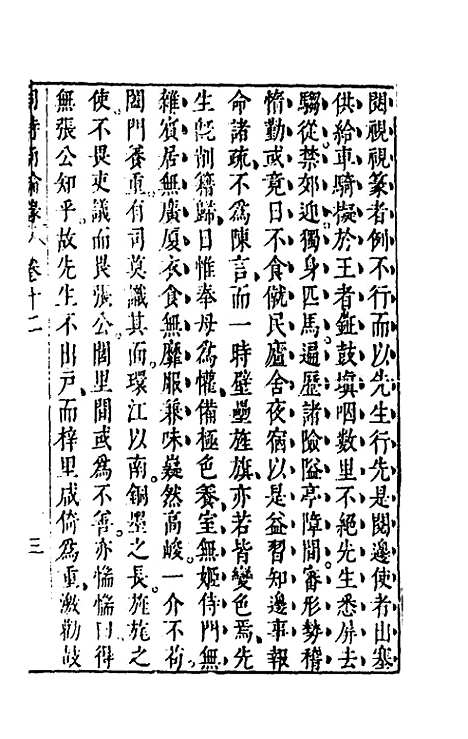 閱視視篆者例不行而以先生行先是閱邊使者出塞
供給車騎擬於王者鉦鼓塡咽數里不絕先生悉屏去
騶從禁郊迎獨身匹馬遍歷諸險隘亭障間審形勢稽
惰勤或竟日不食僦民廬舍夜宿以是益習知邊事報
命諸疏不爲陳言而一時壁壘旌旗亦若皆變色焉先
生旣削籍歸日惟奉母爲懽備極色養室無姬侍門無
雜賓居無廣厦衣食無靡服兼味嶷然高峻一介不苟
閤門養重有司莫識其面環江以南銅墨之長旄旄之
使不畏吏議而畏張公閭里間或爲不善亦惴惴曰得
無張公知乎故先生不出戸而梓里咸倚爲重激勸鼓
卷十二
三